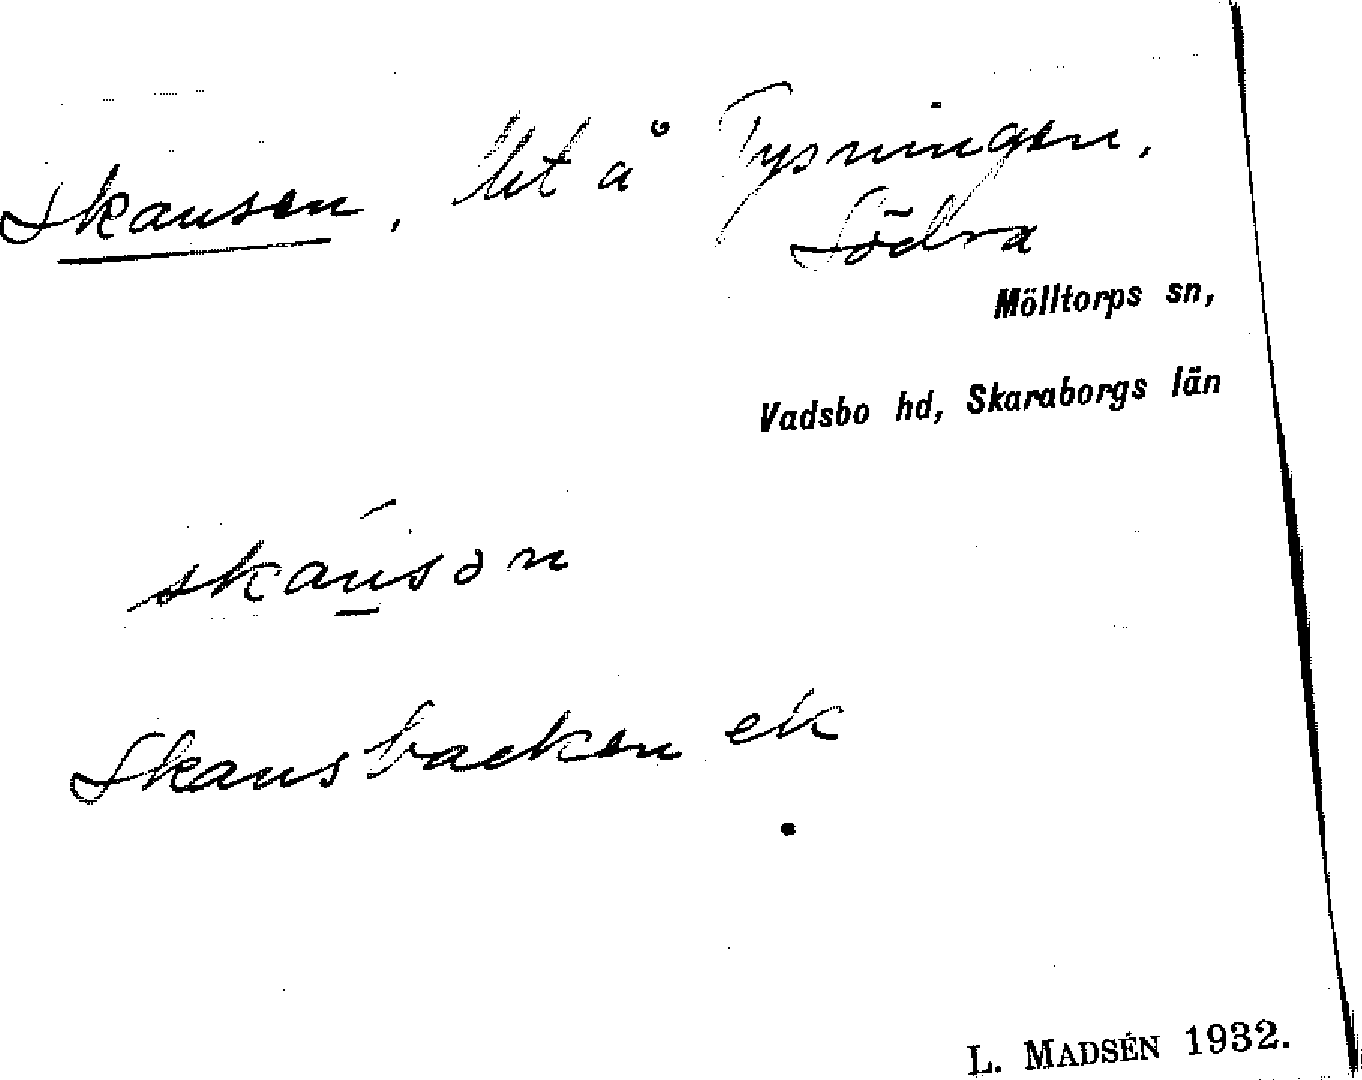 Skansen, lht å Tysningen,
Södra
Mölltorps sn,
Vadsbo hd, Skaraborgs län
skánsən
Skansbacken ek
L. MADSÉN 1932.